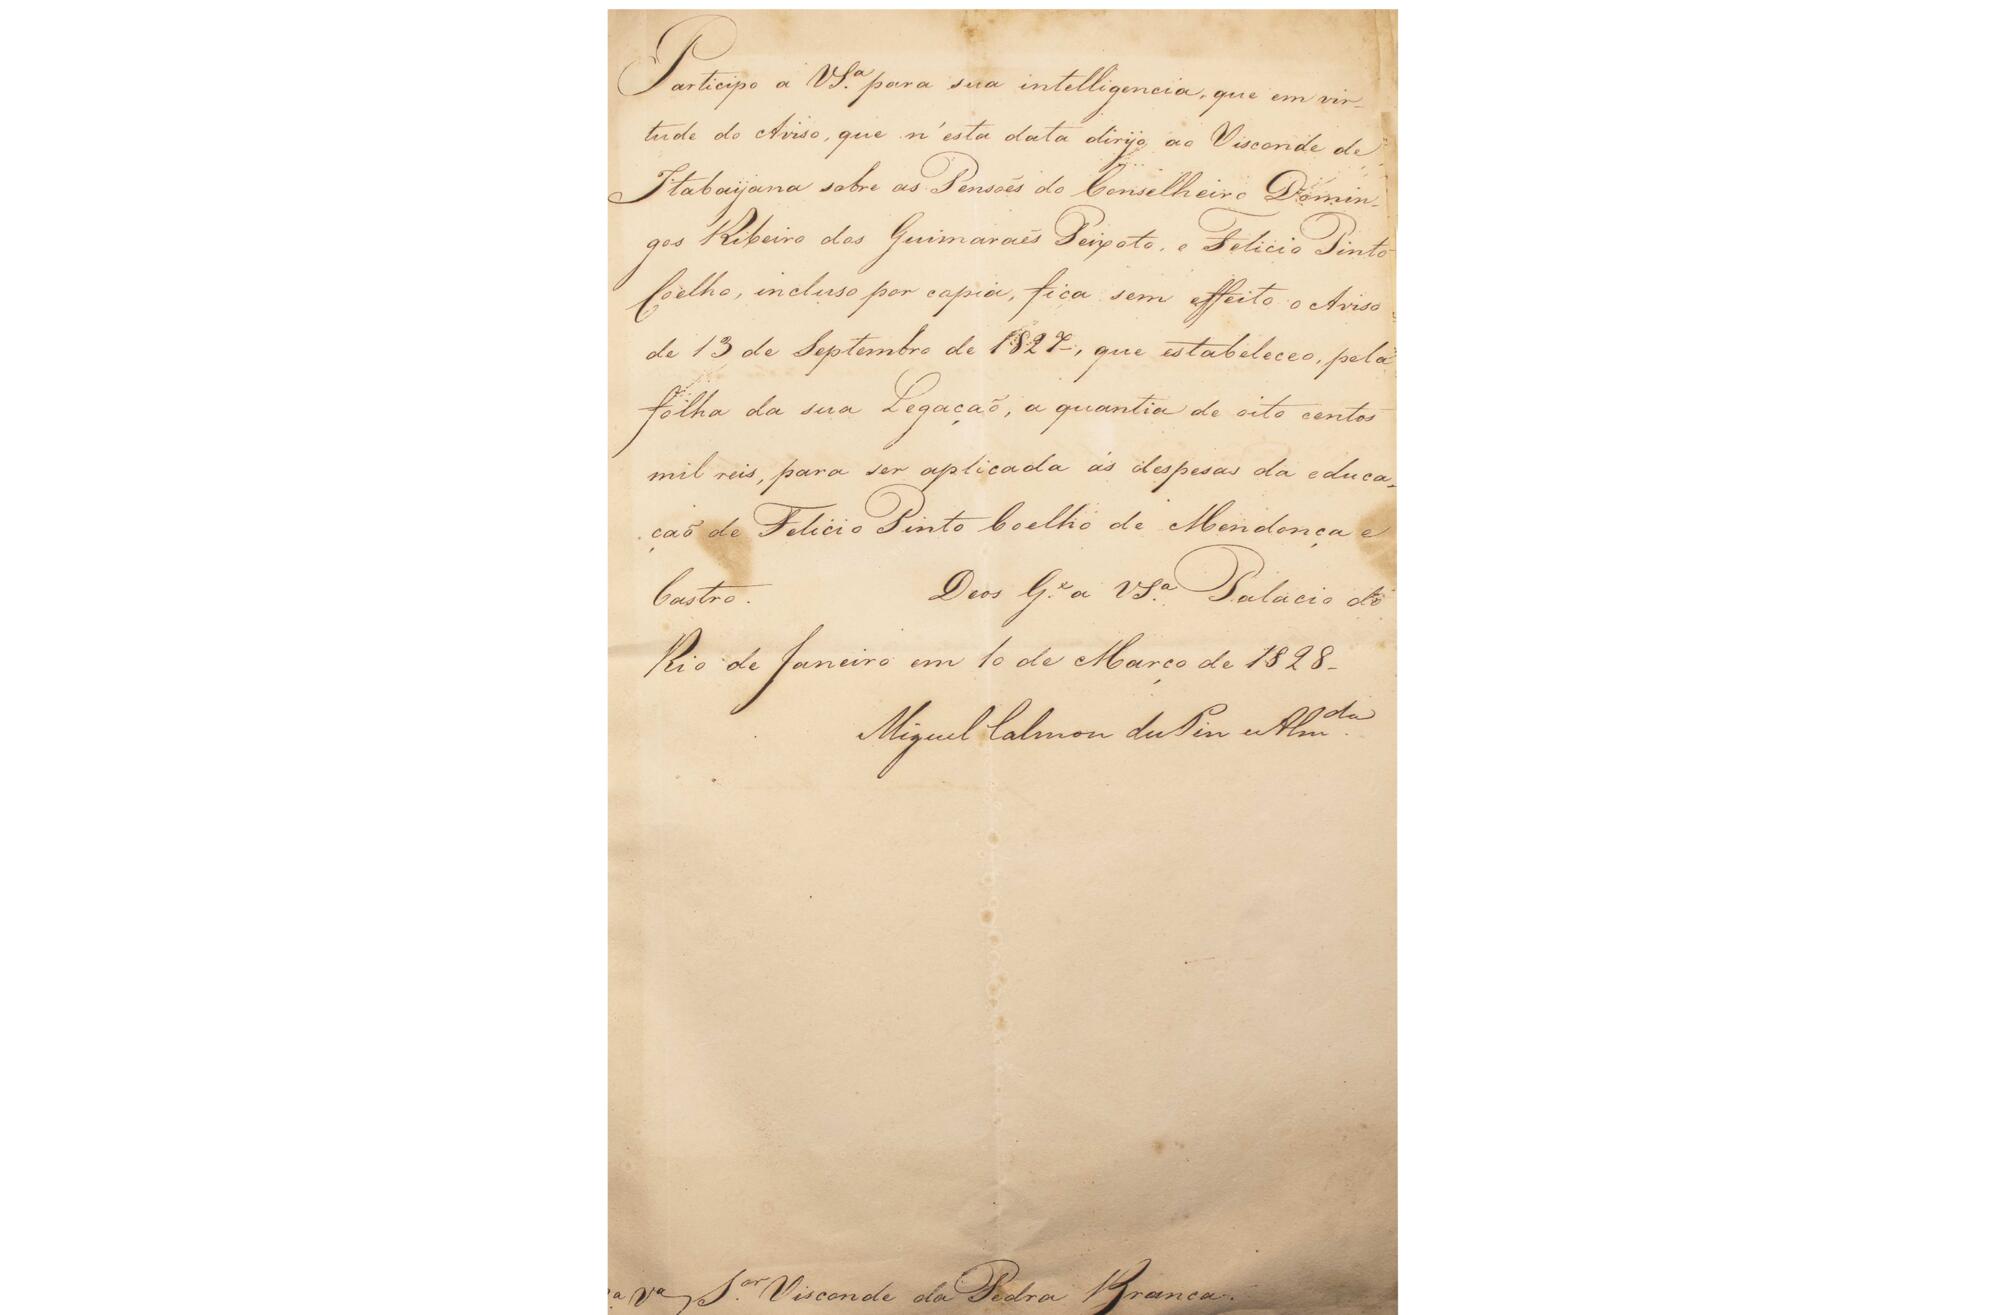 Participo a VS.ª para sua intelligencia, que em vir-
tude do Aviso, que n'esta data dirijo ao Visconde de
Itabayana sobre as Pensoẽs do Conselheiro Domin-
gos Ribeiro dos Guimaraẽs Peixoto, e Felicio Pinto
Coelho, incluso por copia, fica sem effeito o Aviso
de 13 de Septembro de 1827, que estabeleceo, pela
folha da sua Legaçaõ, a quantia de oito centos
mil reis, para ser aplicada ás despesas da educa-
çaõ de Felicio Pinto Coelho de Mendonça e
Castro. Deos G.e a VS.ª Palacio do
Rio de Janeiro em 10 de Março de 1828-
Miguel Calmon du Pin e Alm.da
S.or Visconde da Pedra Branca.